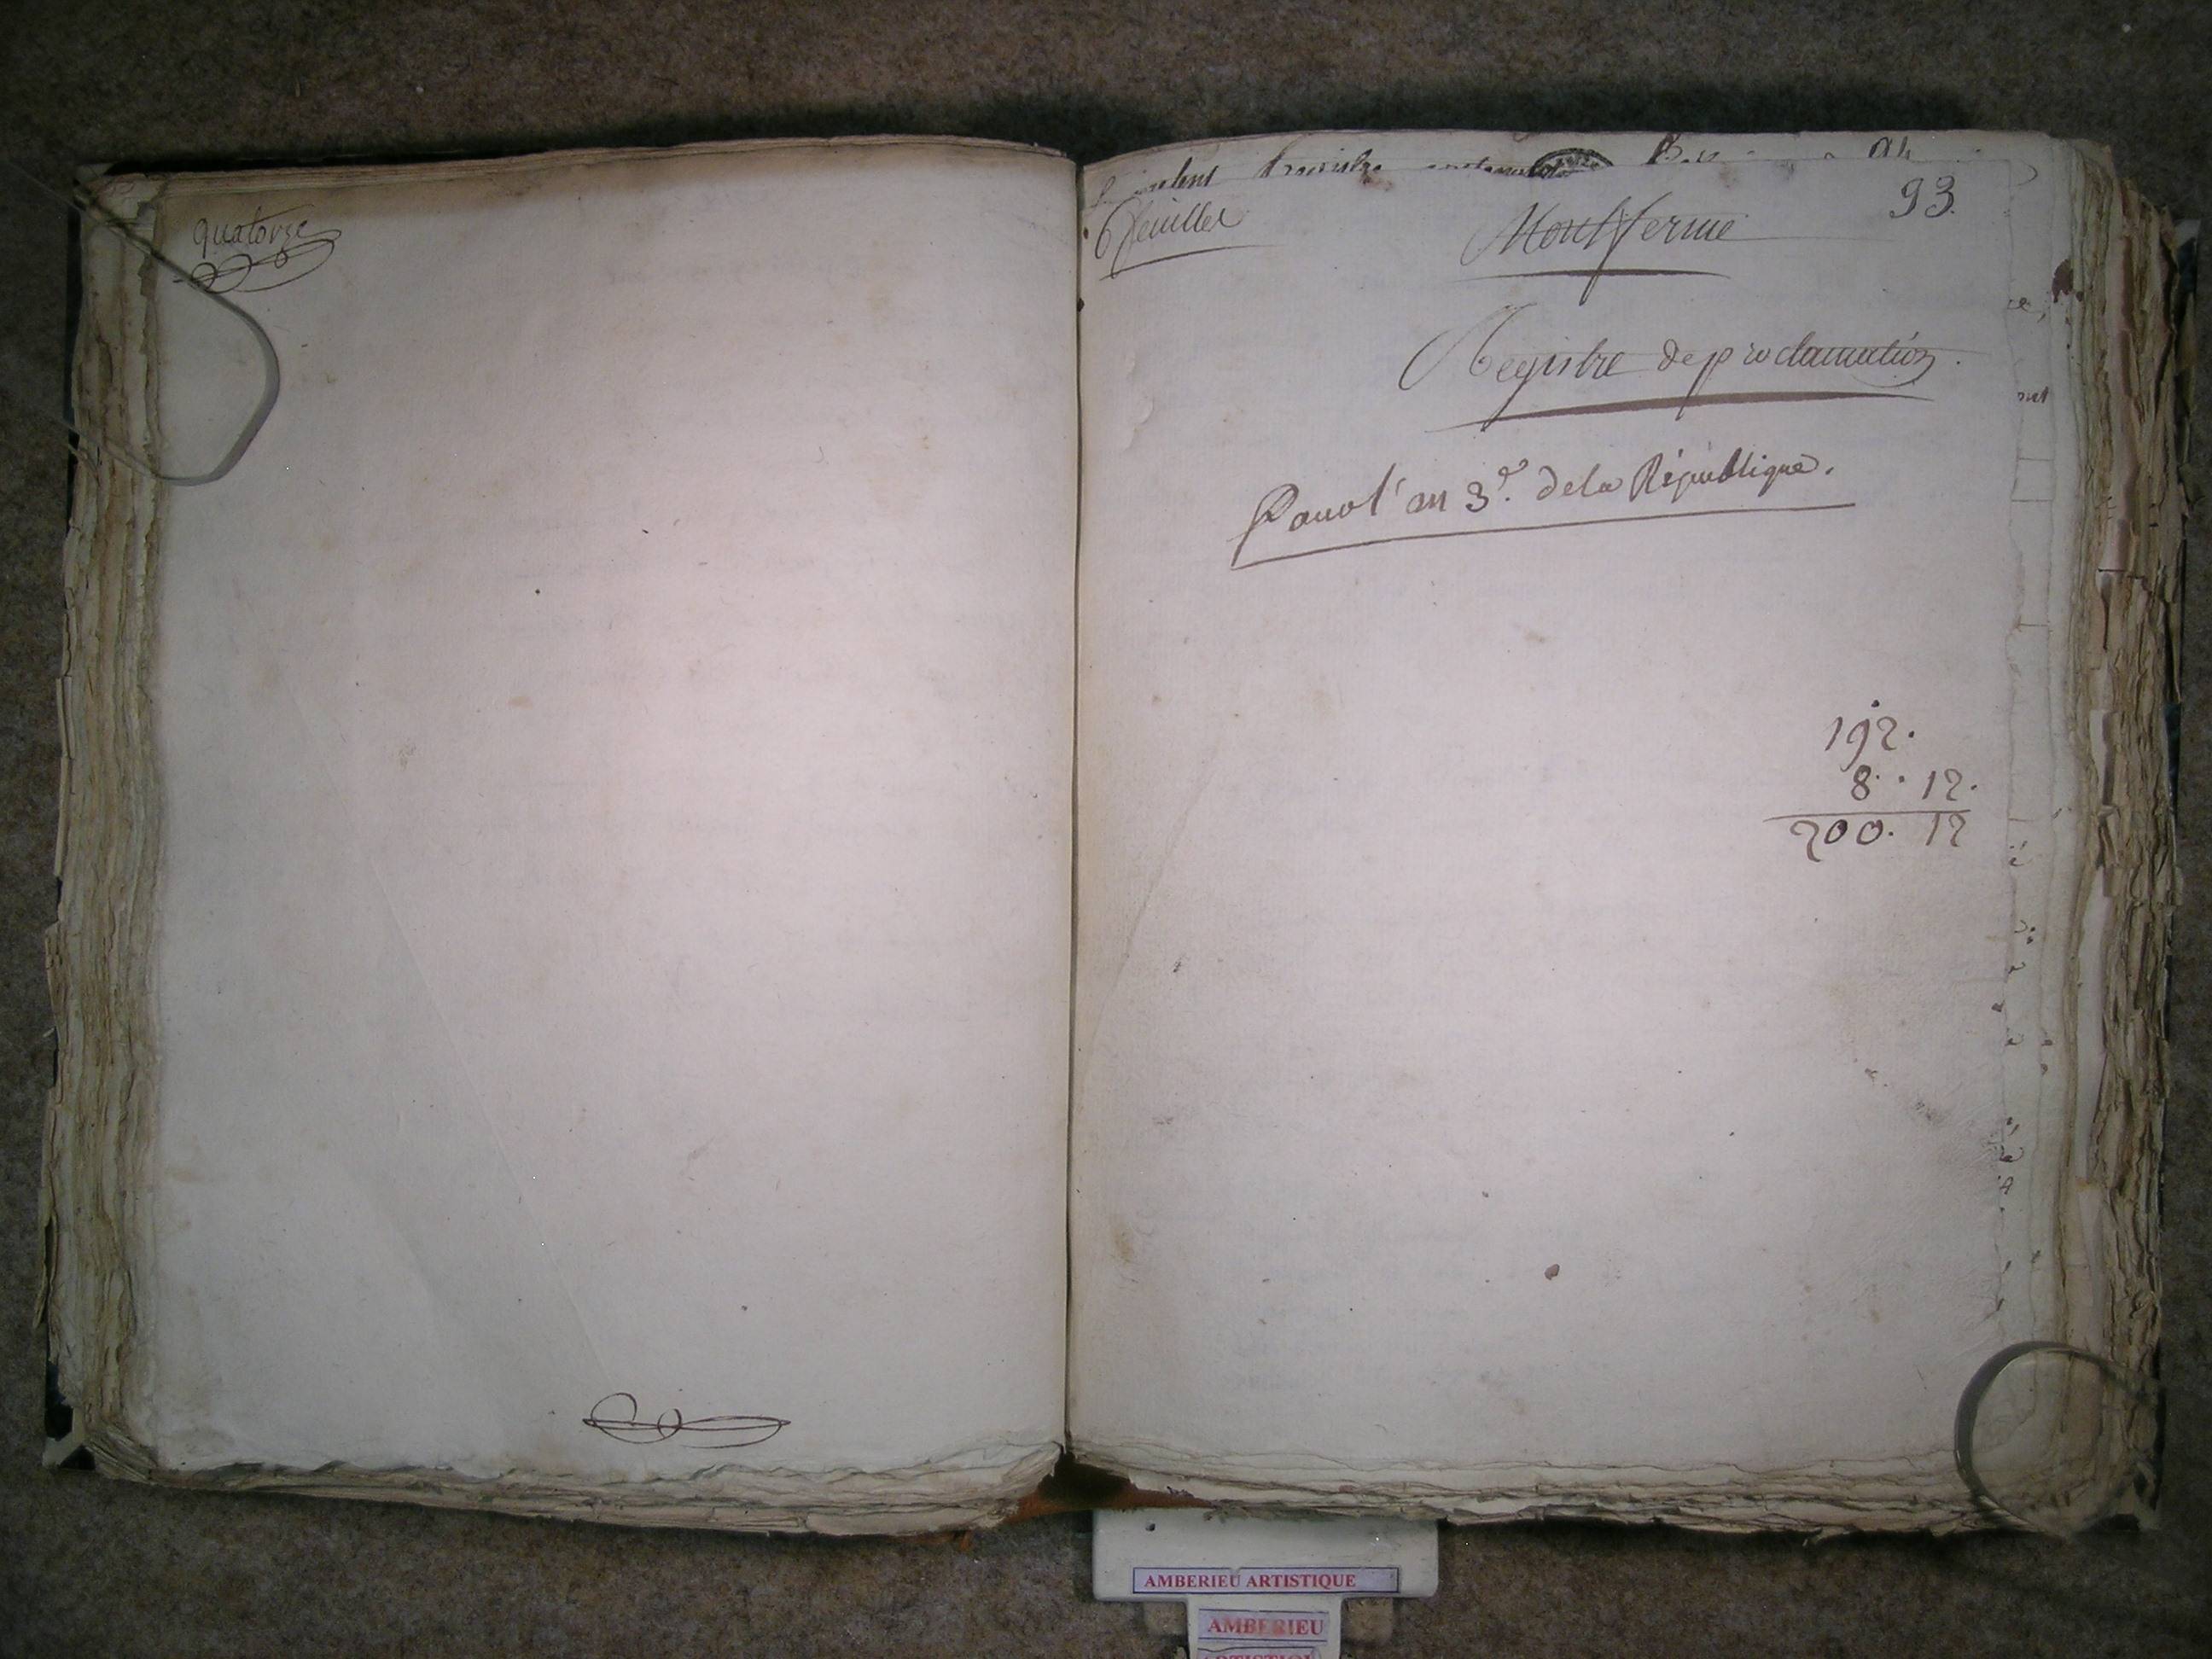 quatorze
présent Registre
6 feuillets
93
Montferme
Registre de proclamation.
Pour l'an 3e. de la République.
192.
8. . 12.
200. 12
AMBERIEU ARTISTIQUE
AMBERIEU
ARTISTIQUE